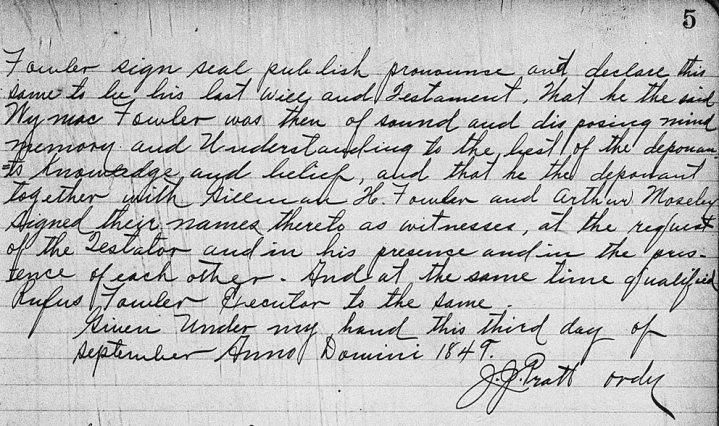 5
Fowler sign seal publish pronounce and declare this
same to be his last will and Testament, That he the said
Wymac Fowler was then of sound and disposing mind
memory and Understanding to the best of the deponan-
ts Knowledge and belief, and that he the deponant
together with Gillman H. Fowler and Arthur Moseley
signed their names thereto as witnesses, at the request
of the Testator and in his presence and in the pres-
ence of each other. And at the same time qualified
Rufus Fowler Executor to the same.
Given Under my hand this third day of
September Anno Domini 1849.
J.J. Pratt Ordy